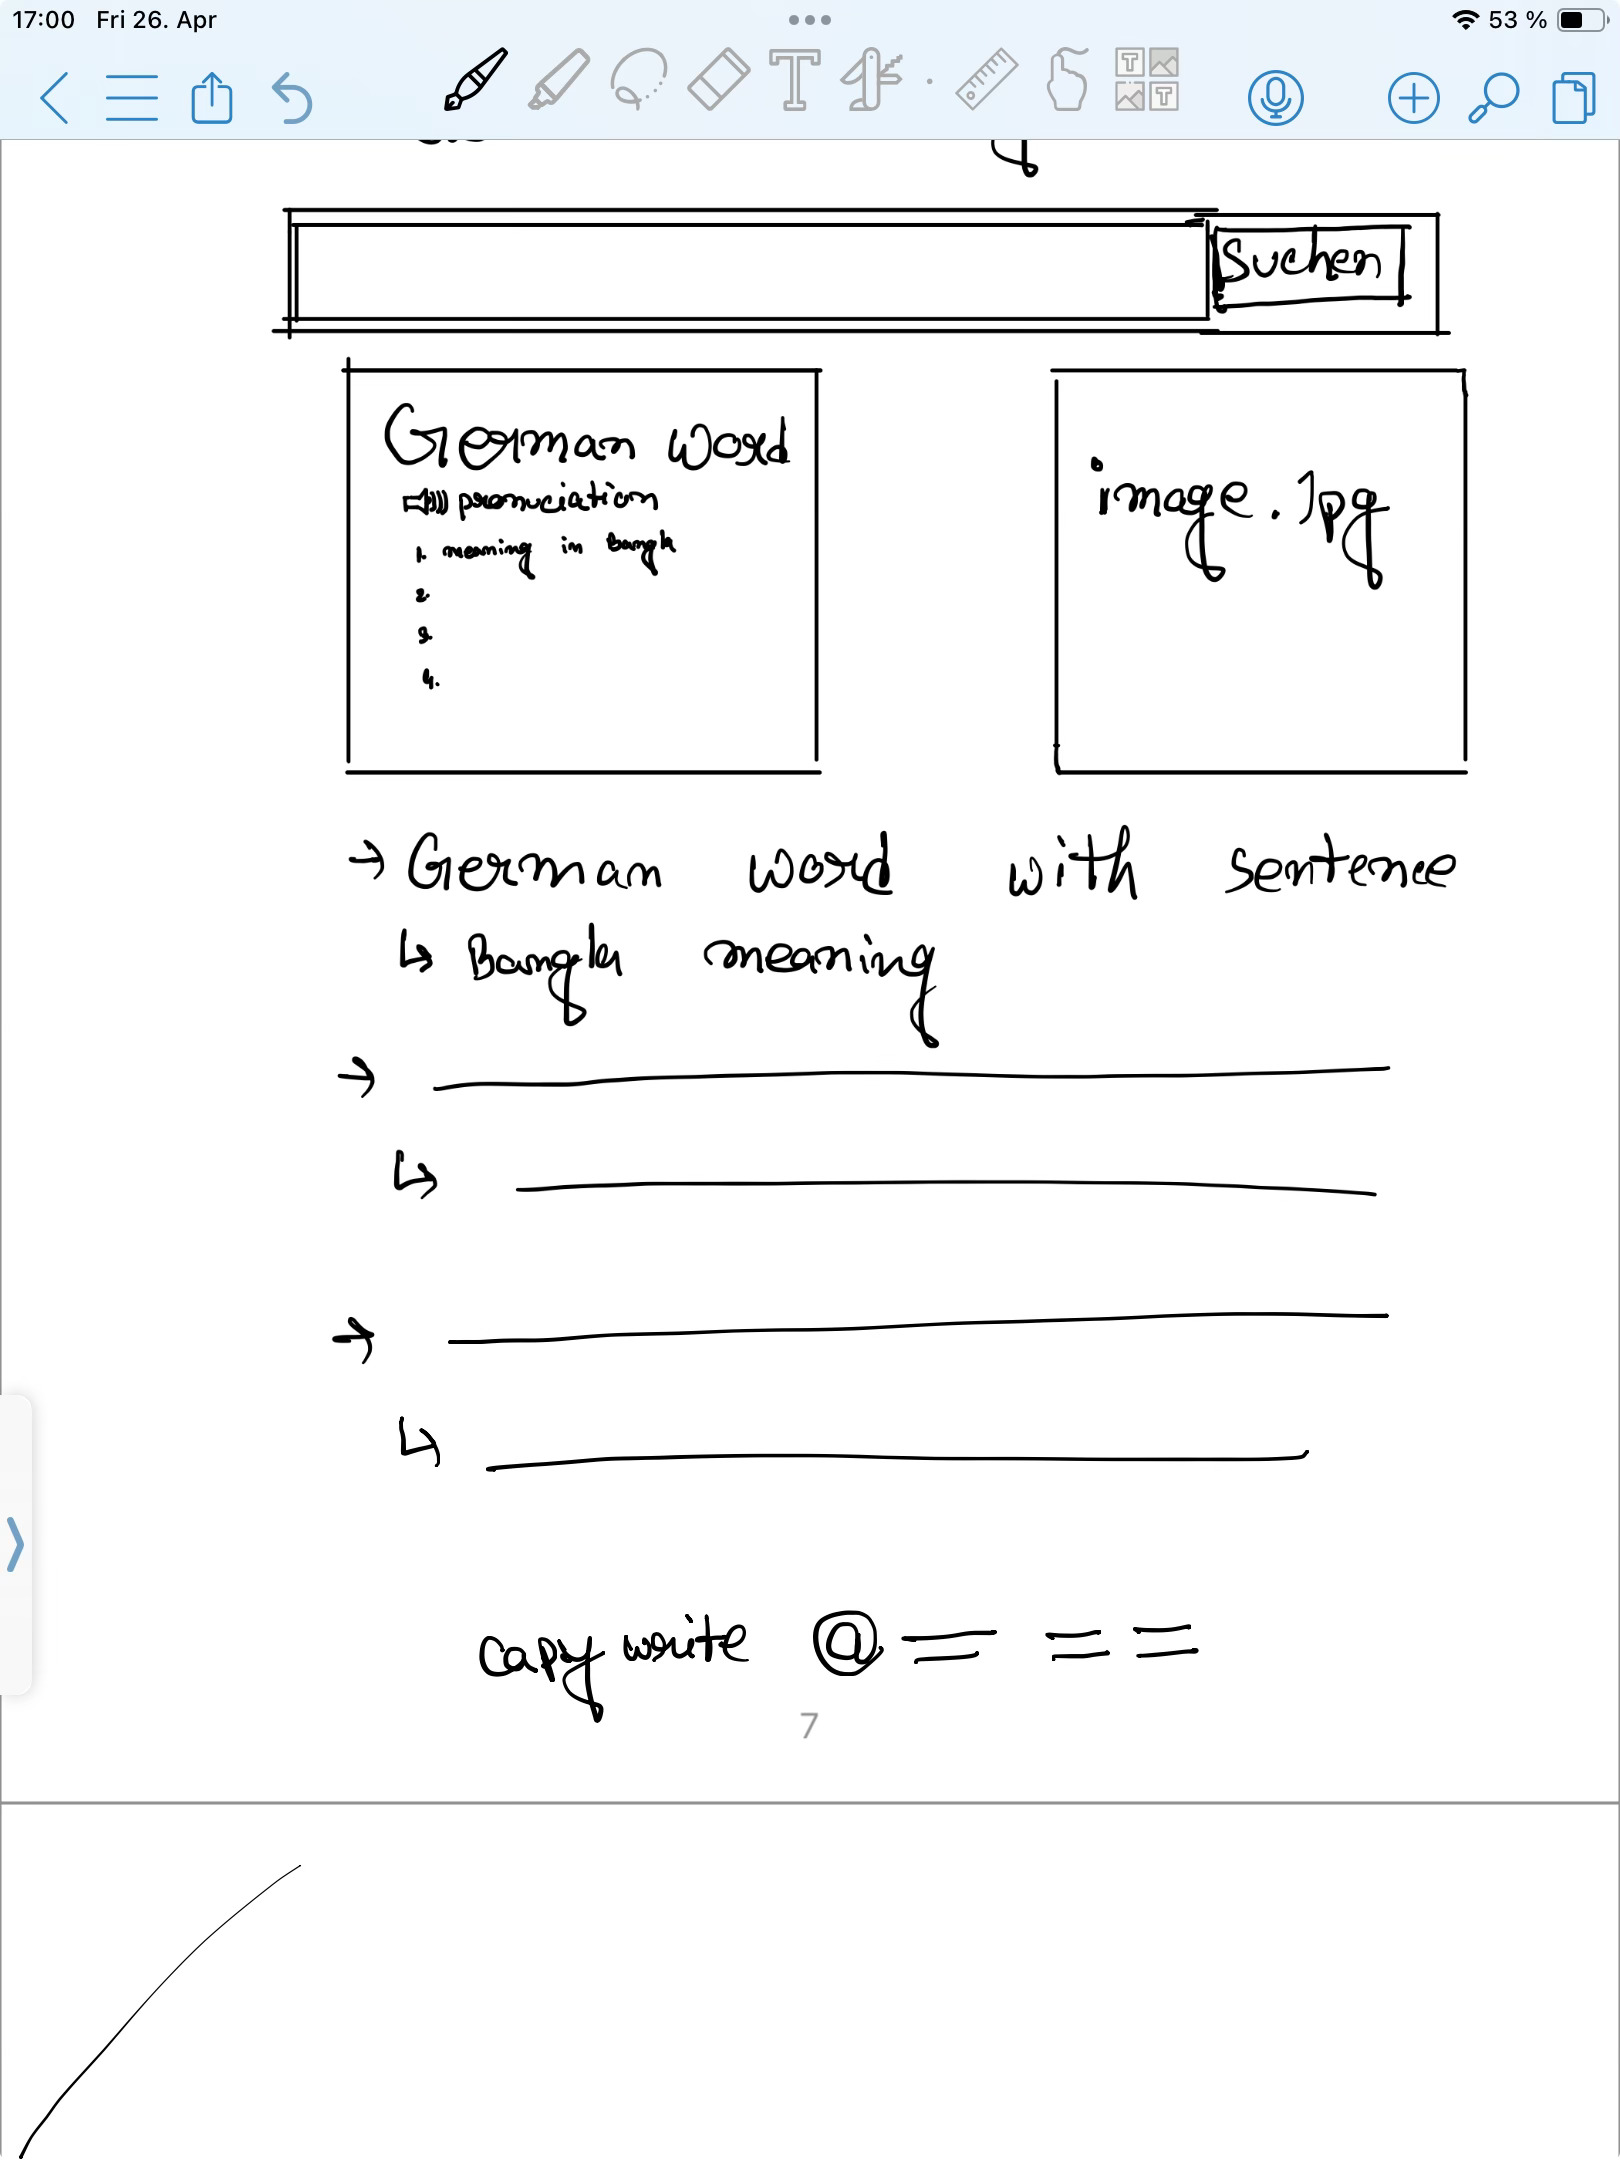 17:00 Fri 26. Apr 53 %
Suchen
German word
pronuciation
1. meaning in Bangla
2.
3.
4.
image. Jpg
→ German word with sentence
↳ Bangla meaning
→
↳
→
↳
copy write @
7